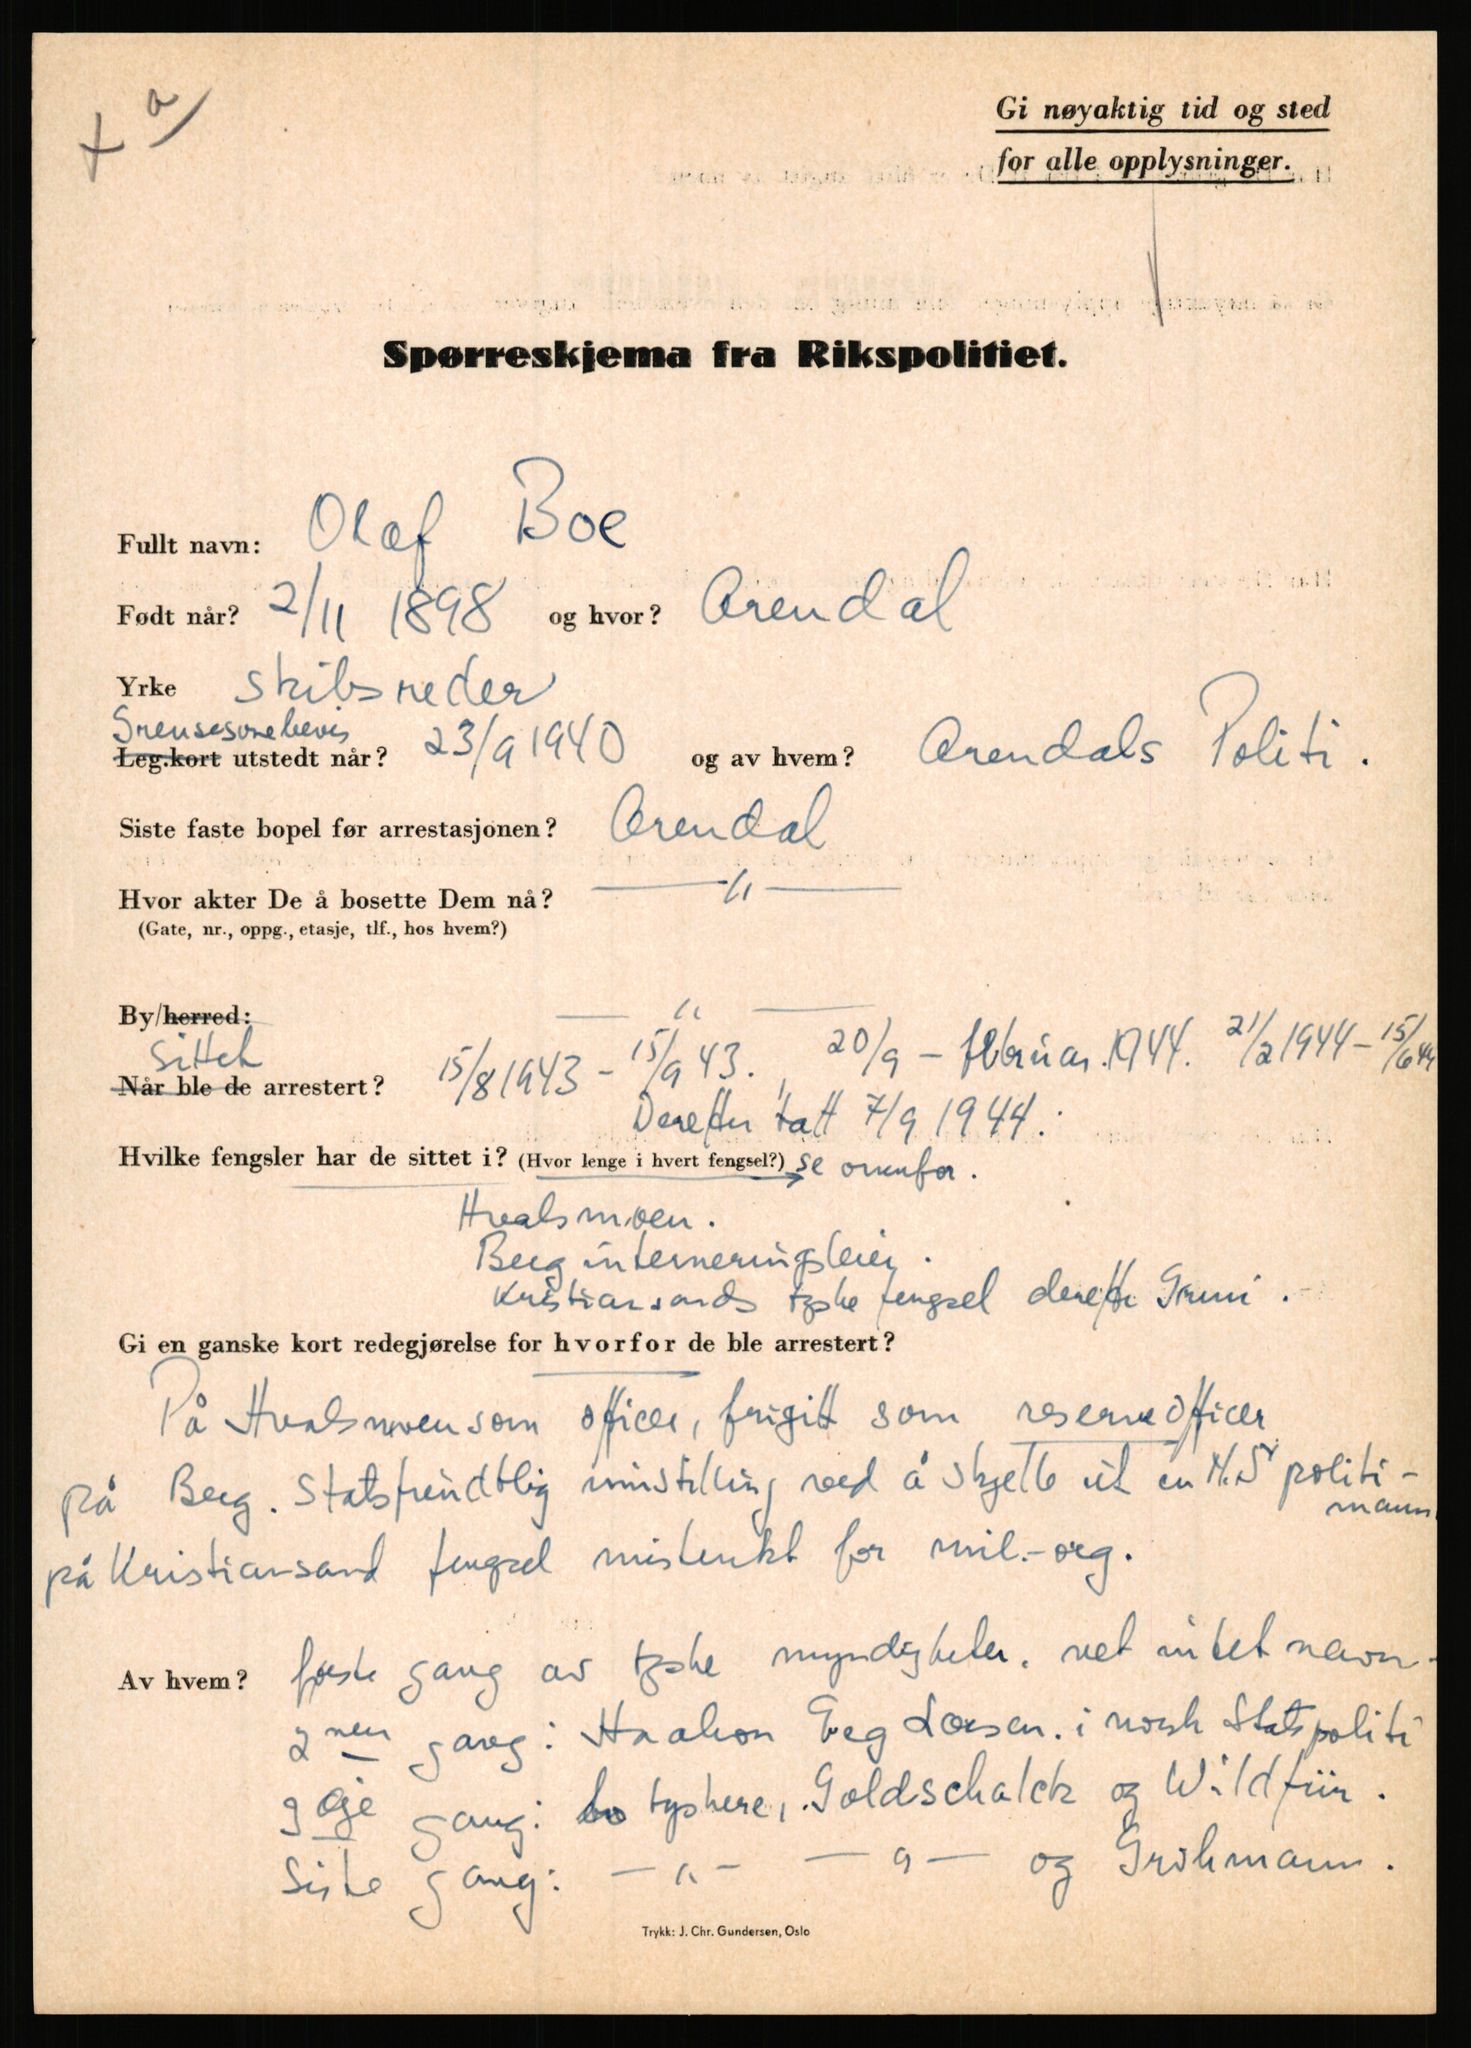 Gi nøyaktig tid og sted
for alle opplysninger.
Spørreskjema fra Rikspolitiet.
Fullt navn: Olaf Boe
Født når? 2/11 1898 og hvor? Arendal
Yrke skibsreder
Grensesonebevis
Leg.kort utstedt når? 23/9 1940 og av hvem? Arendals Politi.
Siste faste bopel før arrestasjonen? Arendal
Hvor akter De å bosette Dem nå? —"—
(Gate, nr., oppg., etasje, tlf., hos hvem?)
By/herred: —"—
Sittet
Når ble de arrestert? 15/8 1943 - 15/9 43. 20/9 - februar 1944. 21/2 1944 - 15/6 44
Derefter tatt 7/9 1944.
Hvilke fengsler har de sittet i? (Hvor lenge i hvert fengsel?) se ovenfor.
Hvalsmoen.
Berg interneringsleir.
Kristiansands tyske fengsel derefter Grini.
Gi en ganske kort redegjørelse for hvorfor de ble arrestert?
På Hvalsmoen som officer, frigitt som reserveofficer
på Berg. Statsfiendtlig innstilling ved å skjelle ut en N.S politi-
mann
på Kristiansand fengsel mistenkt for mil.-org.
Av hvem? første gang av tyske myndigheter. vet intet navn.
2nen gang: Haakon Eeg Larsen. i norsk Statspoliti
3dje gang: to tyskere, Goldschalck og Wildfür.
Siste gang: —"— —"— og Gröhmann.
Trykk: J. Chr. Gundersen, Oslo